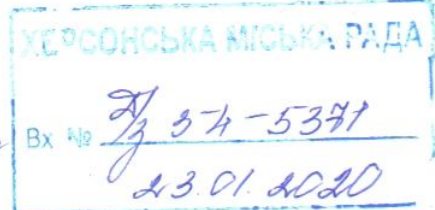 ХЕРСОНСЬКА МІСЬКА РАДА
Вх № 5-4-5371
23.01.2020